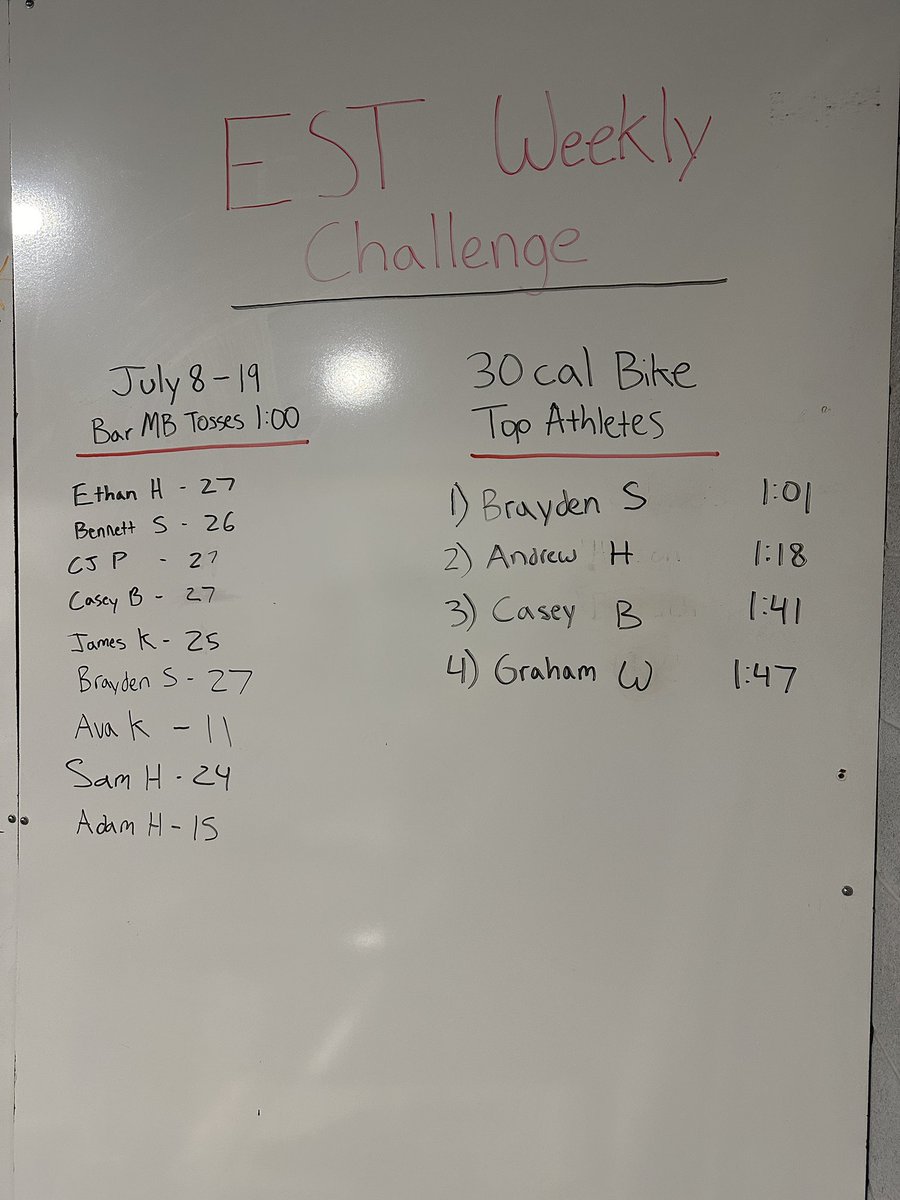 EST Weekly
Challenge
July 8-19
Bar MB Tosses 1:00
Ethan H - 27
Bennett S - 26
CJ P - 27
Casey B - 27
James K - 25
Brayden S - 27
Ava K - 11
Sam H - 24
Adam H - 15
30 cal Bike
Top Athletes
1) Brayden S 1:01
2) Andrew H 1:18
3) Casey B 1:41
4) Graham W 1:47